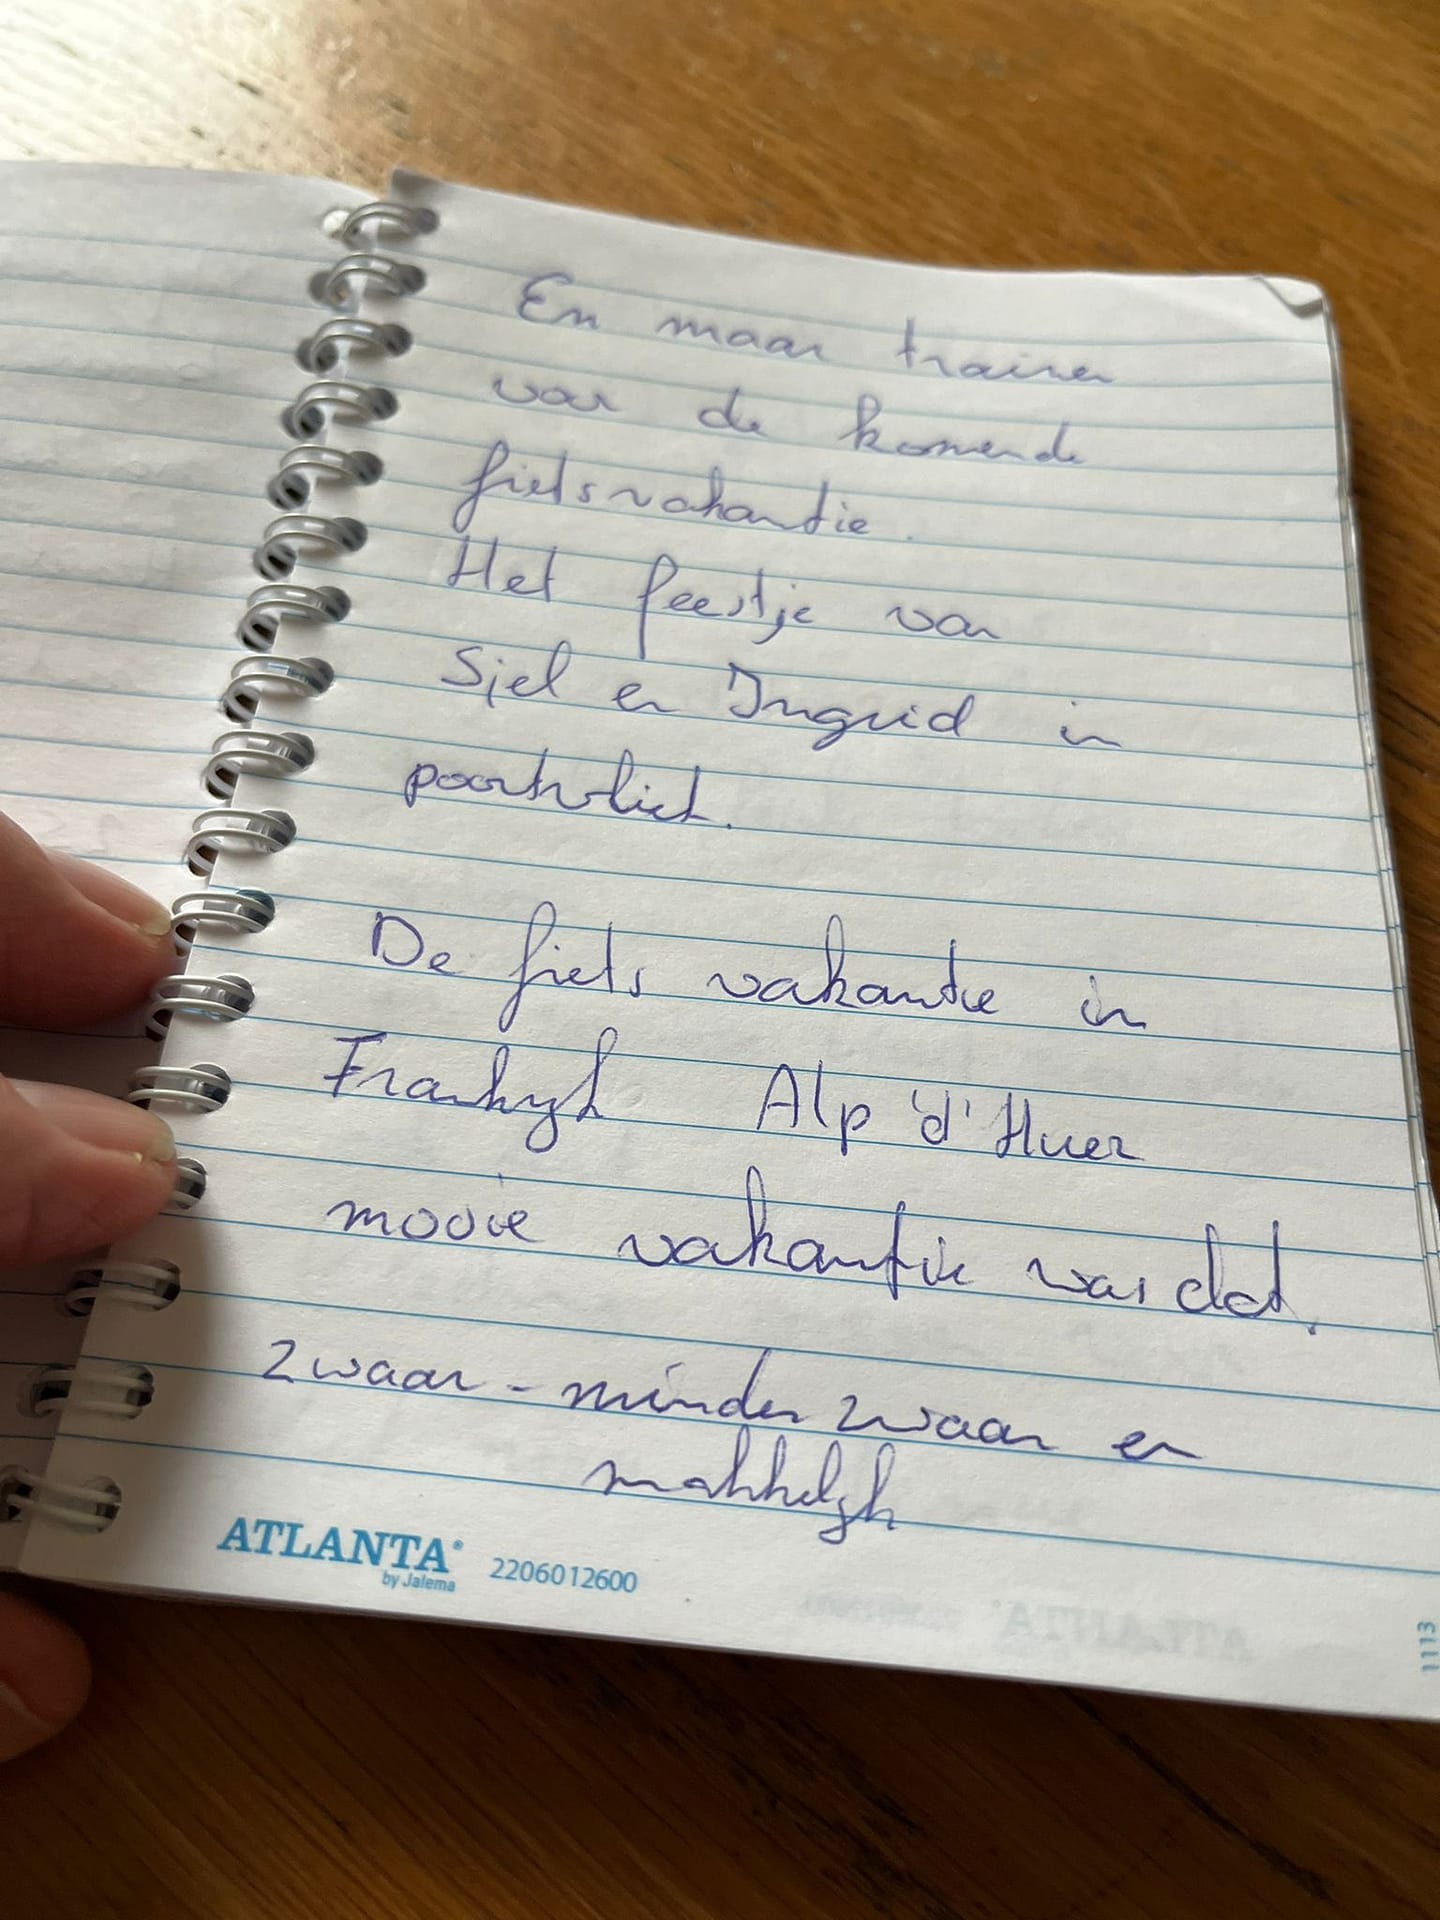 En maar trainen
voor de komende
fietsvakantie.
Het feestje van
Sjel en Ingrid in
poortvliet.
De fiets vakantie in
Frankrijk Alp 'd' Huez
mooie vakantie was dat.
Zwaar - minder zwaar en
makkelijk
ATLANTA
by Jalema
2206012600
1113